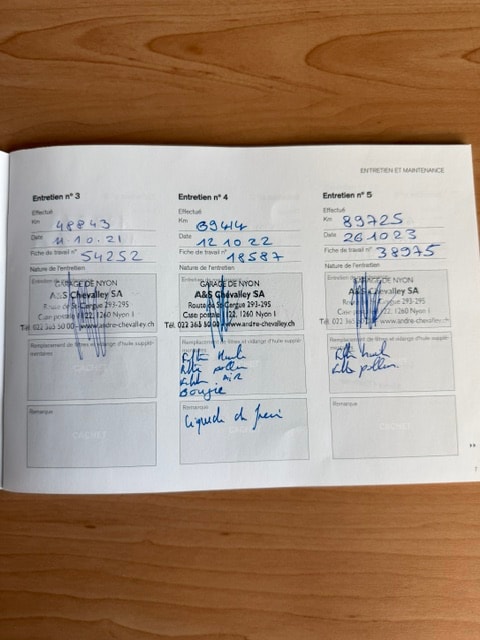 ENTRETIEN ET MAINTENANCE
Entretien n° 3
Effectué
Km 48843
Date 11.10.21
Fiche de travail n° 54252
Nature de l'entretien
GARAGE DE NYON
A&S Chevalley SA
Route de St-Cergue 293-295
Case postale 1122, 1260 Nyon 1
Tél. 022 365 50 00 - www.andre-chevalley.ch
Remplacement de filtres et vidange d'huile supplé-
mentaires
Remarque
CACHET
Entretien n° 4
Effectué
Km 69414
Date 12 10 22
Fiche de travail n° 18587
Nature de l'entretien
GARAGE DE NYON
A&S Chevalley SA
Route de St-Cergue 293-295
Case postale 1122, 1260 Nyon 1
Tél. 022 365 50 00 - www.andre-chevalley.ch
Remplacement de filtres et vidange d'huile supplé-
filtre huile
filtre pollen
filtre air
Bougie
Remarque
liquide de frein
CACHET
Entretien n° 5
Effectué
Km 89725
Date 261023
Fiche de travail n° 38975
Nature de l'entretien
GARAGE DE NYON
A&S Chevalley SA
Route de St-Cergue 293-295
Case postale 1122, 1260 Nyon 1
Tél. 022 365 50 00 - www.andre-chevalley.ch
Remplacement de filtres et vidange d'huile supplé-
filtre huile
filtre pollen
Remarque
CACHET
7